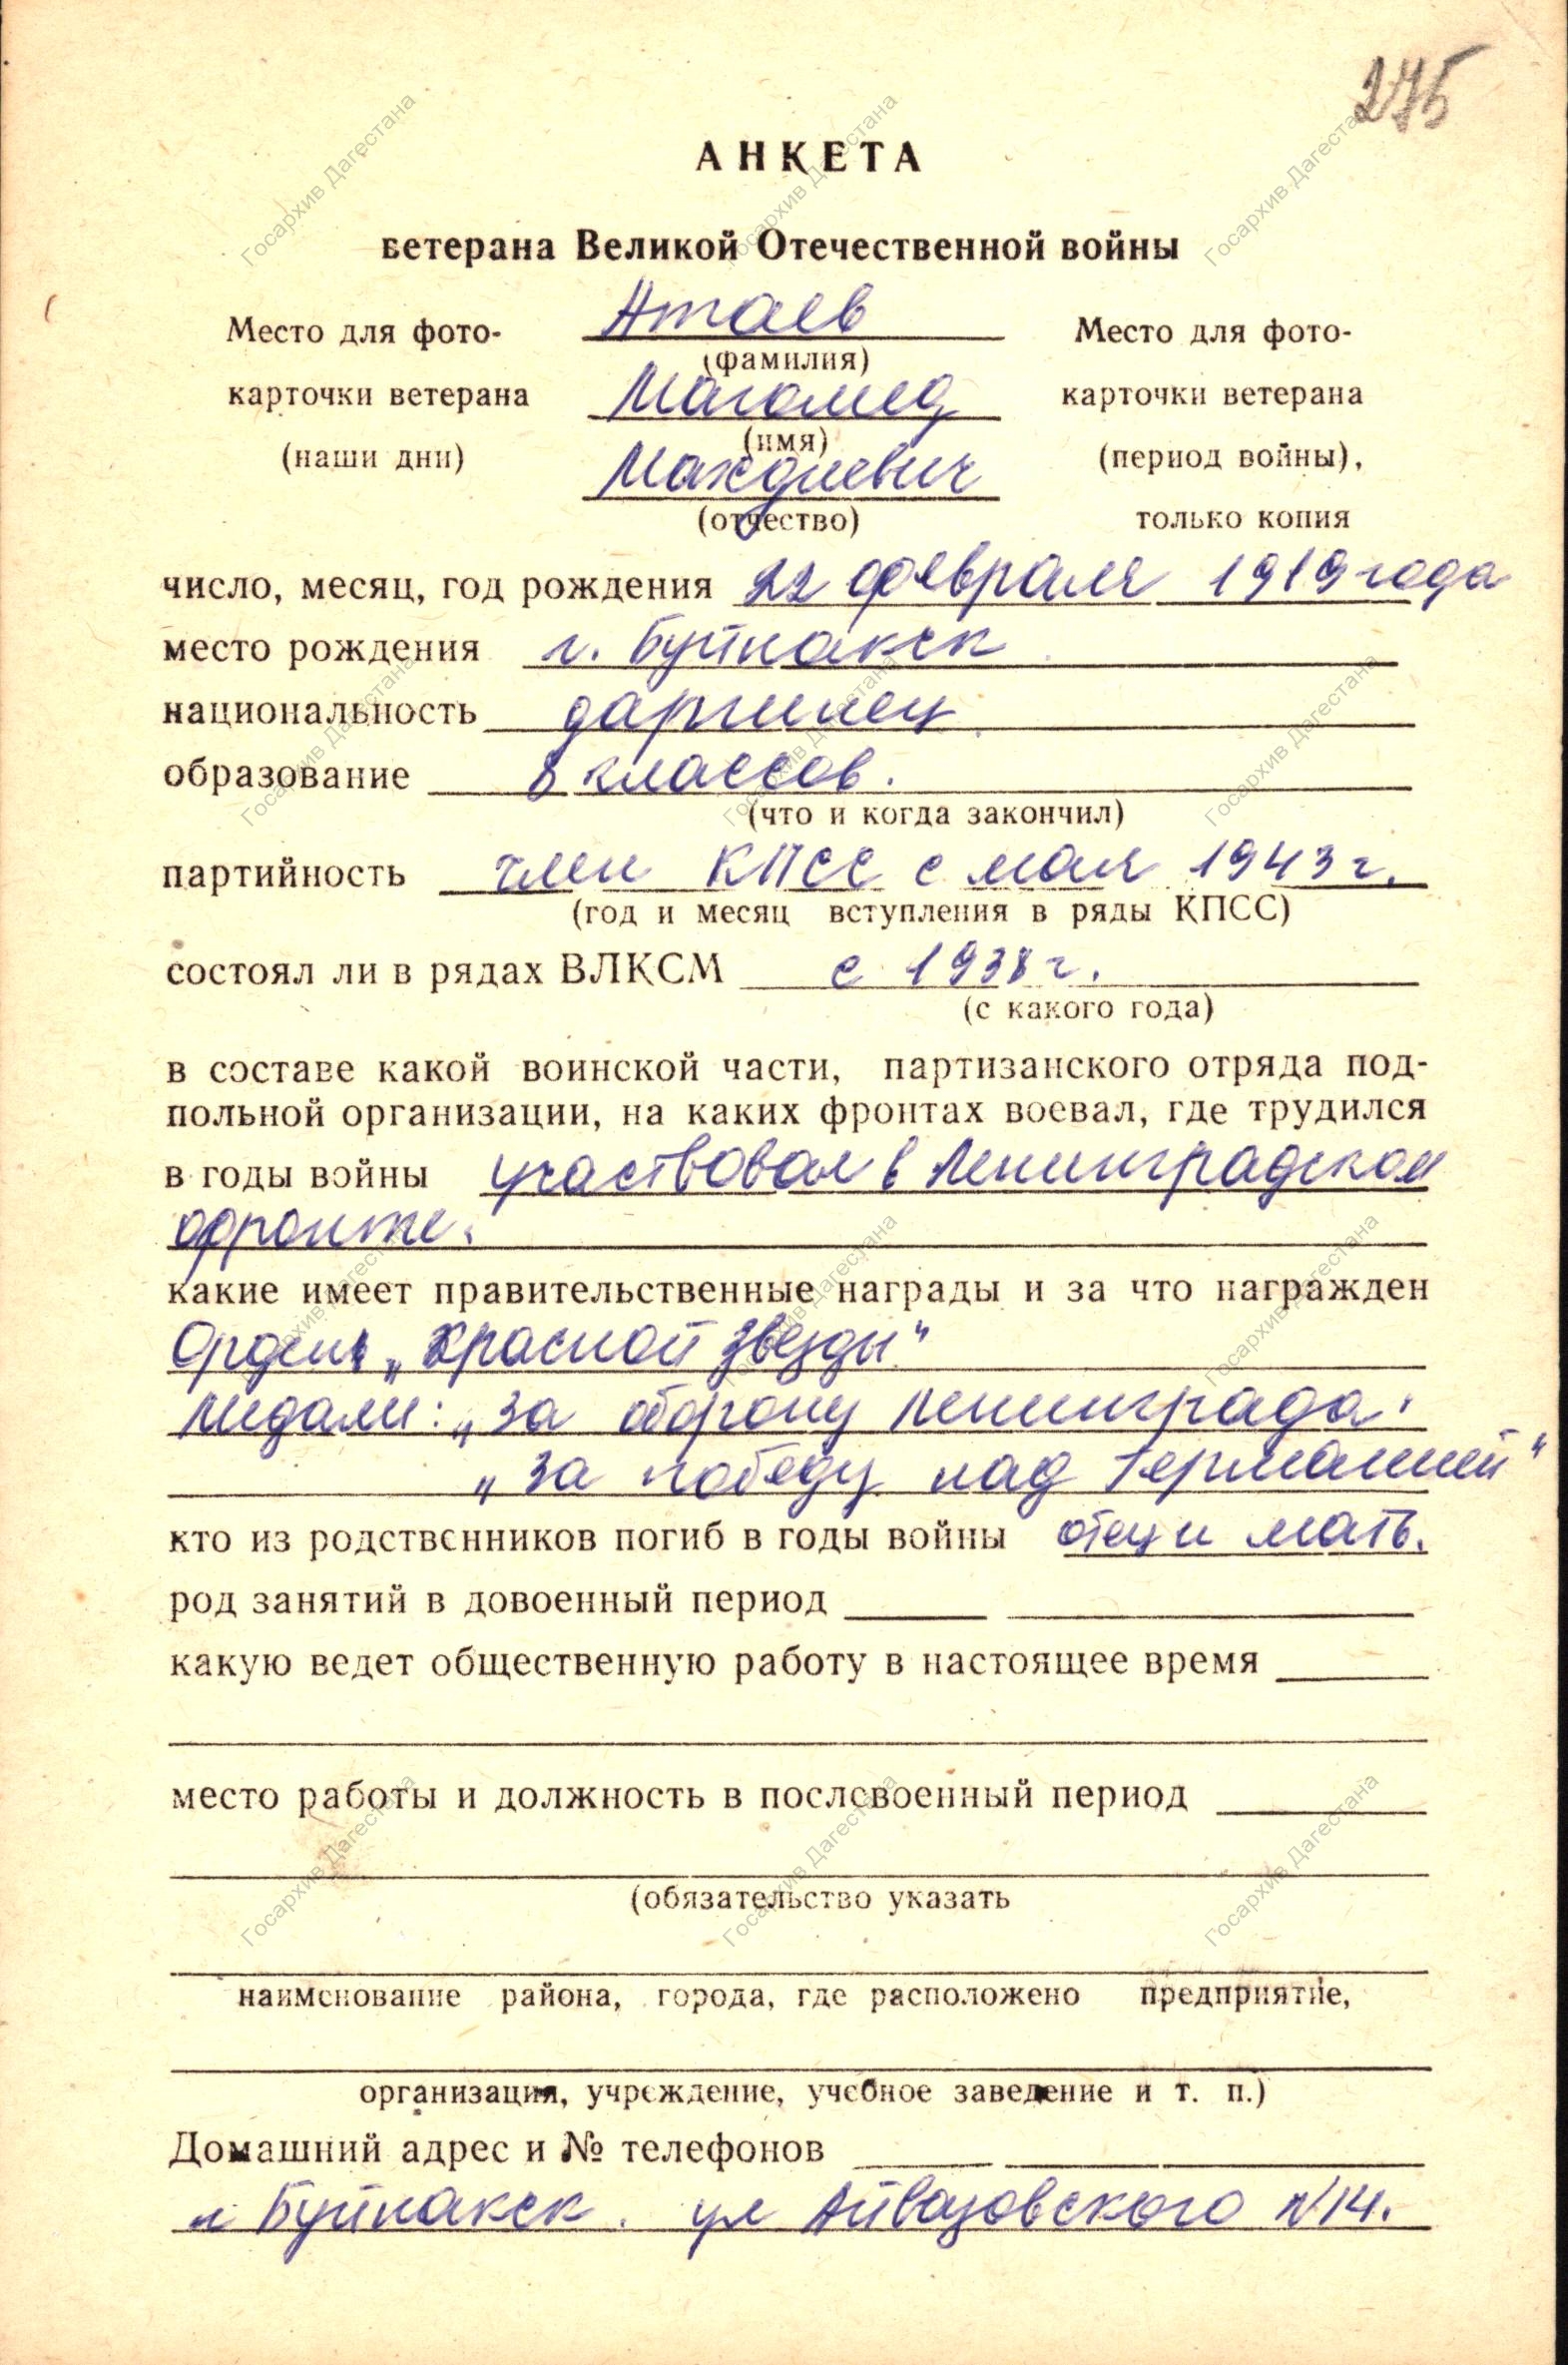 275
АНКЕТА
ветерана Великой Отечественной войны
Место для фото-
карточки ветерана
(наши дни)
Атаев
(фамилия)
Магомед
(имя)
Махдиевич
(отчество)
Место для фото-
карточки ветерана
(период войны),
только копия
число, месяц, год рождения 22 февраля 1919 года
место рождения г. Буйнакск
национальность даргинец
образование 8 классов.
(что и когда закончил)
партийность член КПСС с мая 1943 г.
(год и месяц вступления в ряды КПСС)
состоял ли в рядах ВЛКСМ с 1938 г.
(с какого года)
в составе какой воинской части, партизанского отряда под-
польной организации, на каких фронтах воевал, где трудился
в годы войны участвовал в Ленинградском
фронте.
какие имеет правительственные награды и за что награжден
Орден „Красной Звезды“
медали: „За оборону Ленинграда.
„За победу над Германией“
кто из родственников погиб в годы войны отец и мать.
род занятий в довоенный период
какую ведет общественную работу в настоящее время
место работы и должность в послевоенный период
(обязательство указать
наименование района, города, где расположено предприятие,
организация, учреждение, учебное заведение и т. п.)
Домашний адрес и № телефонов
г Буйнакск. ул Айвазовского N14.
Госархив Дагестана